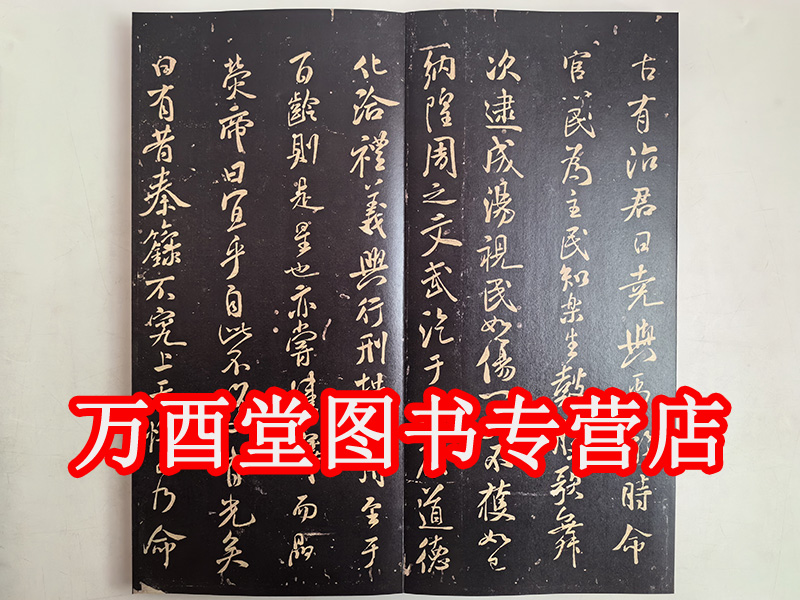 古有治君曰尭與禹時命
官以民為主民知樂生鼓腹歌舞
次逮成湯視民如傷一不獲如己
納隍周之文武汔于道德
化洽禮義興行刑用至于
百齡則是星也亦嘗而
熒帝曰宜乎自此不光矣
曰有昔秦籙不究上乃命
万酉堂图书专营店